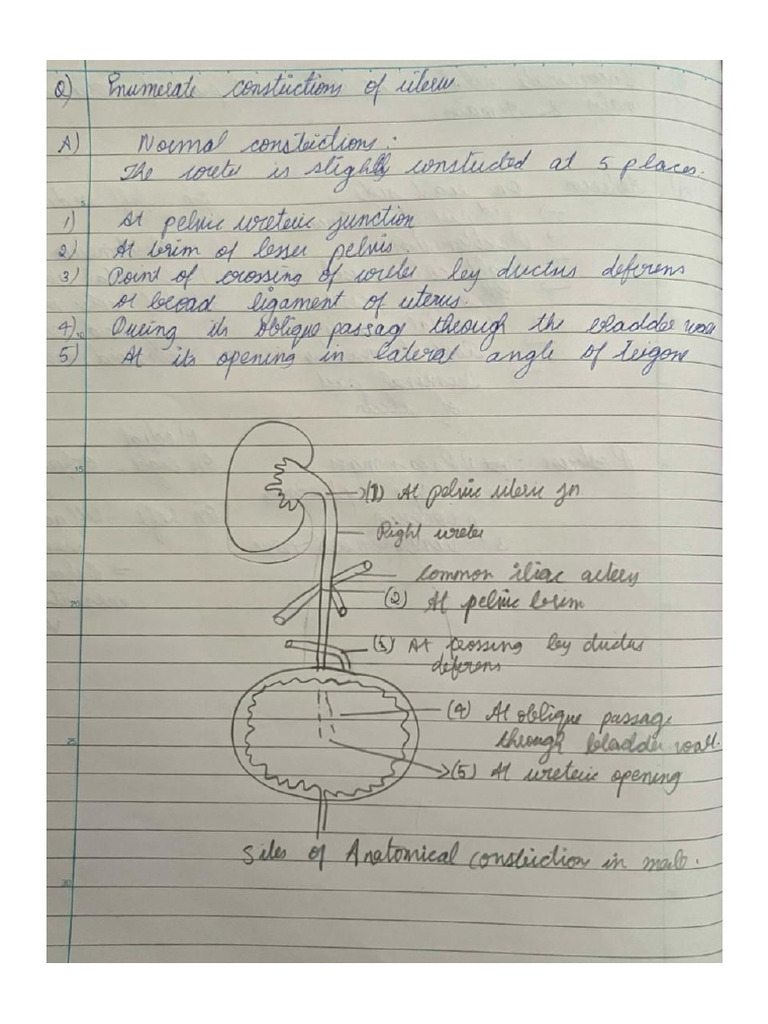 Q) Enumerate constrictions of ureter.
A) Normal constrictions:
The ureter is slightly constricted at 5 places.
1) At pelvic ureteric junction
2) At brim of lesser pelvis.
3) Point of crossing of ureter by ductus deferens
or broad ligament of uterus.
4) During its oblique passage through the bladder wall
5) At its opening in lateral angle of trigone
15
(1) At pelvic uteric jn
Right ureter
Common iliac artery
20
(2) At pelvic brim
(3) At crossing by ductus
deferens
(4) At oblique passage
through bladder wall.
25
(5) At ureteric opening
Sites of Anatomical constriction in male.
30